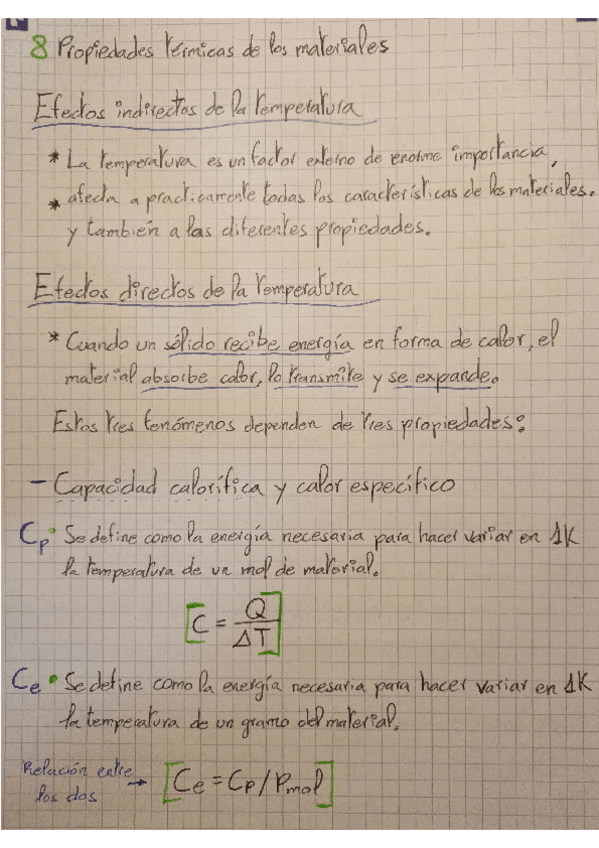 8 Propiedades térmicas de los materiales
Efectos indirectos de la temperatura
* La temperatura es un factor externo de enorme importancia,
* afecta a practicamente todas las características de los materiales.
y también a las diferentes propiedades.
Efectos directos de la temperatura
* Cuando un sólido recibe energía en forma de calor, el
material absorbe calor, lo transmite y se expande.
Estos tres fenómenos dependen de tres propiedades:
- Capacidad calorífica y calor específico
Cp • Se define como la energía necesaria para hacer variar en 1K
la temperatura de un mol de material.
[C = Q / ΔT]
Ce • Se define como la energía necesaria para hacer variar en 1K
la temperatura de un gramo del material.
Relación entre
los dos → [Ce = Cp / Pmol]